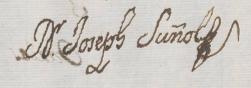 Dr. Joseph Suñol